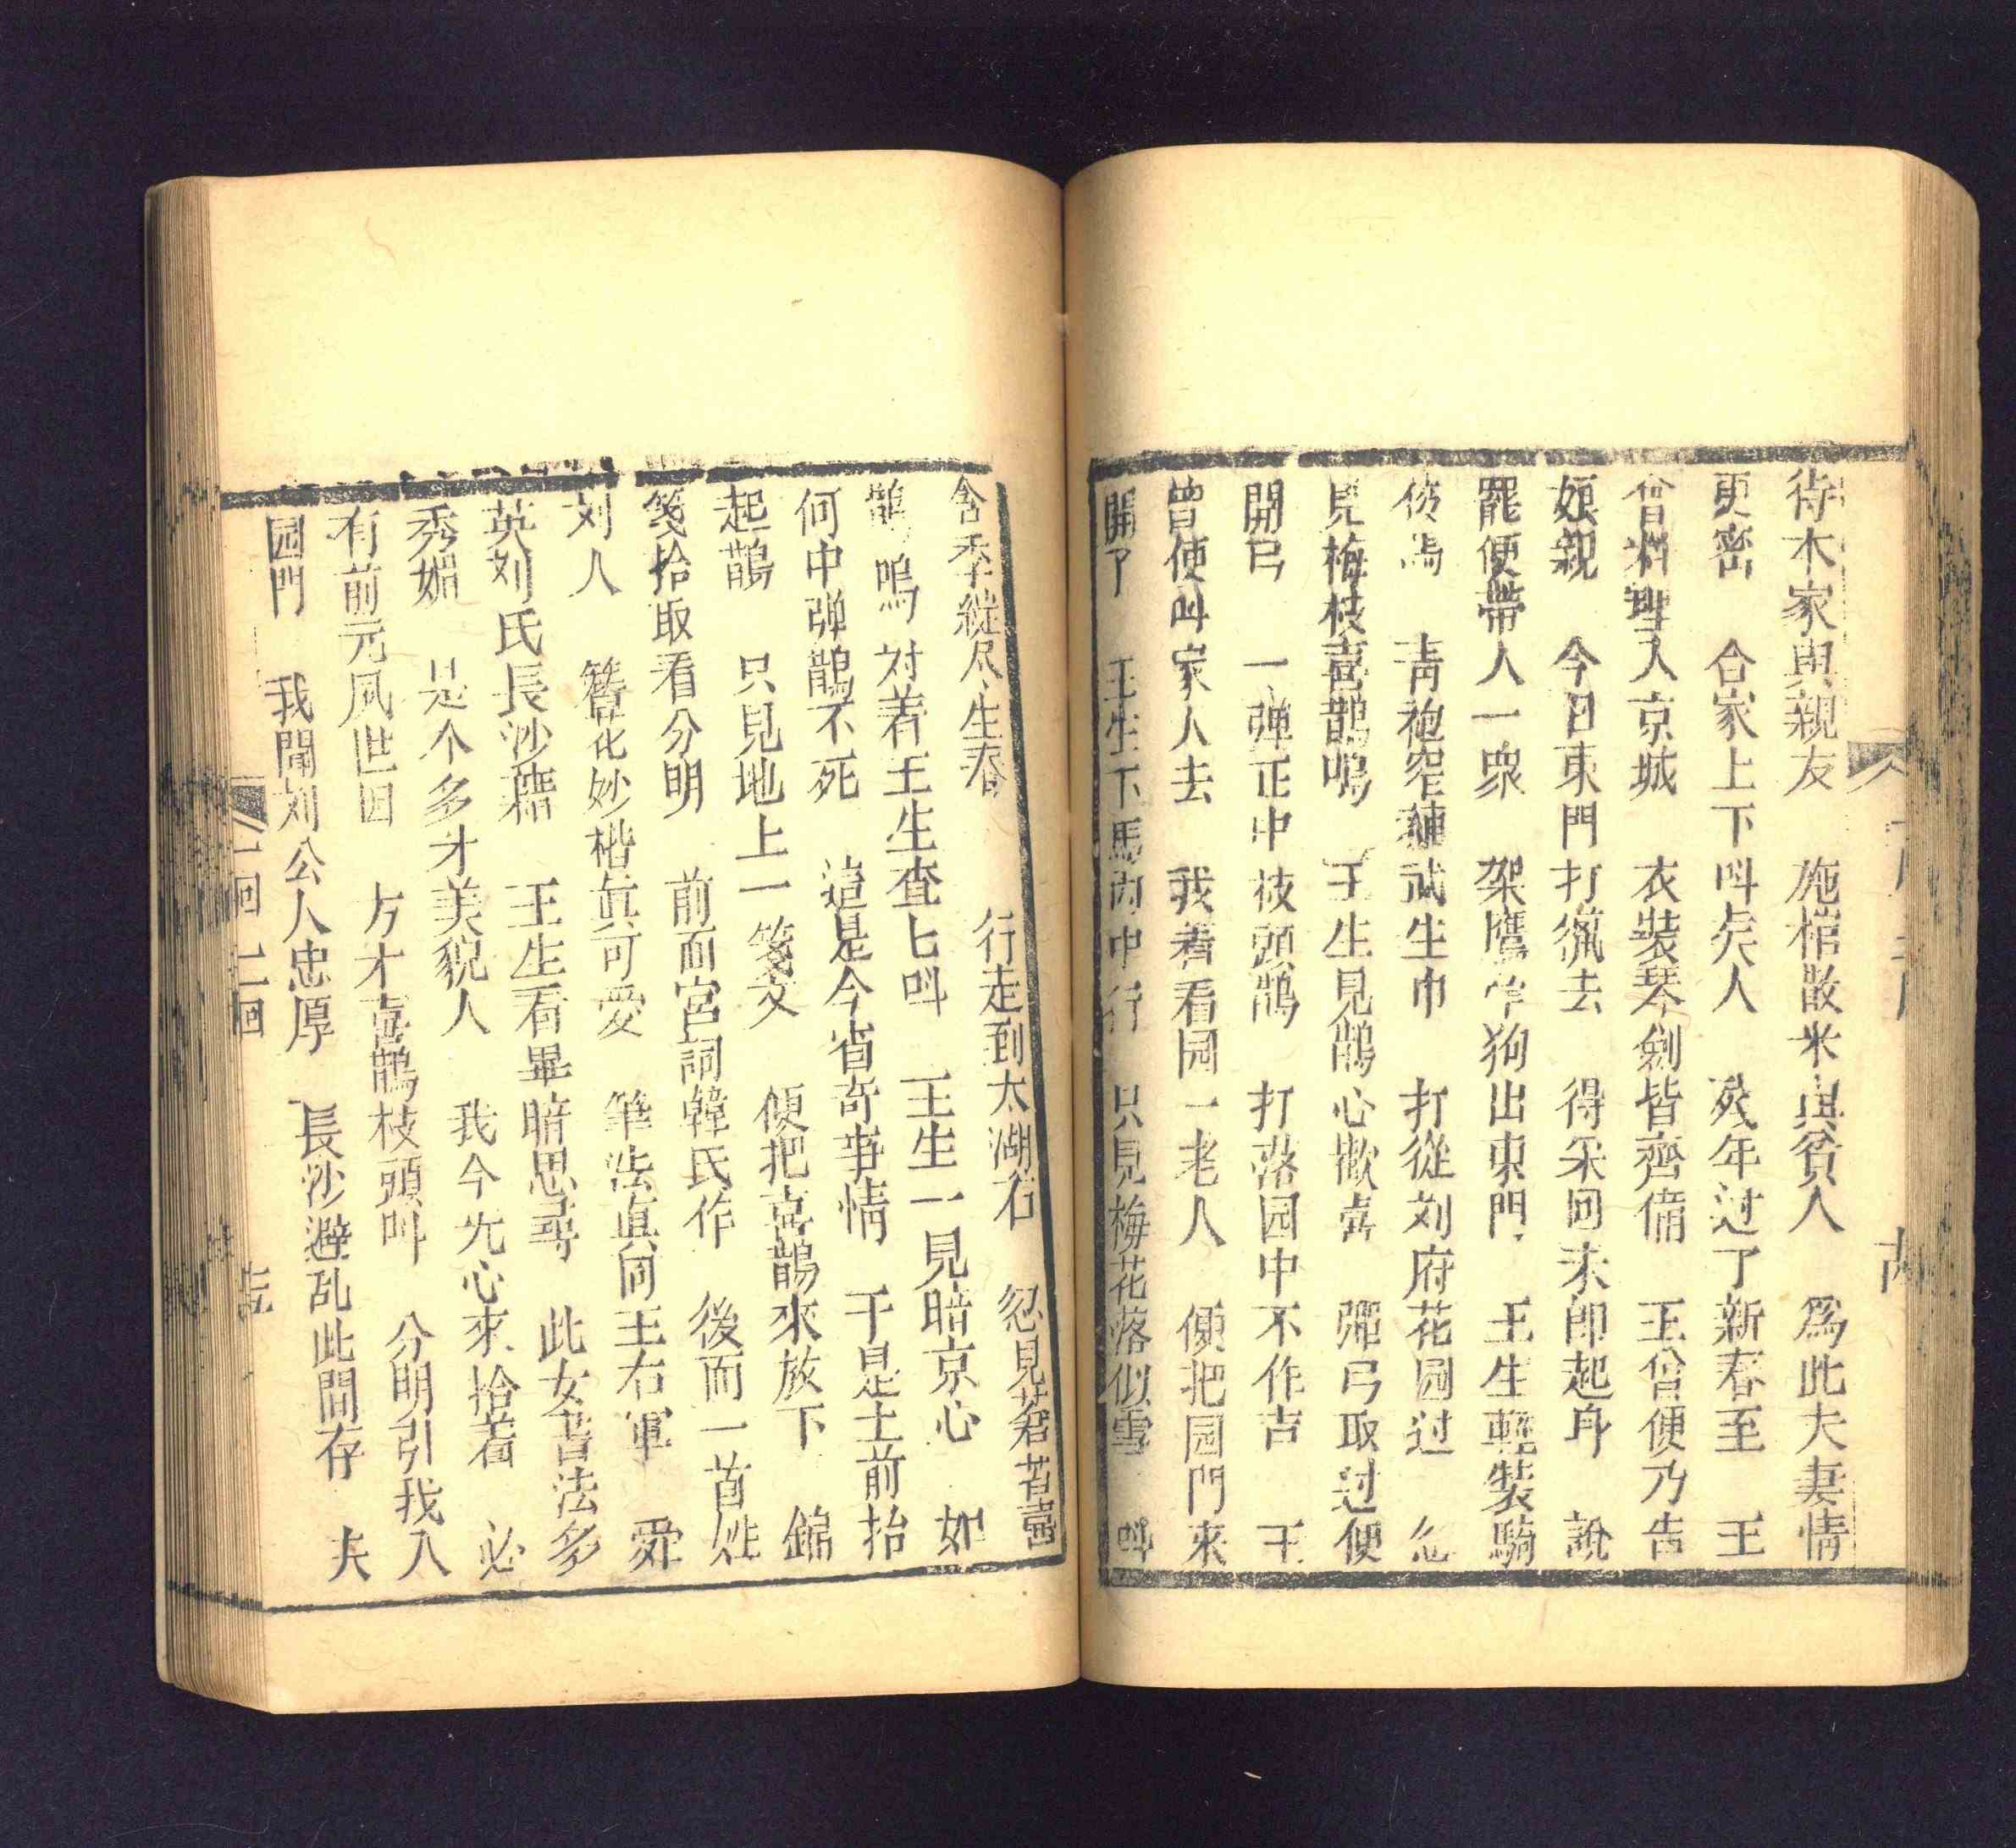 待木家與親友　施棺散米與貧人　爲此夫妻情
更密　合家上下呌矣人　殘年过了新春至　王
曾料理入京城　衣裝琴劍皆齊備　王曾便乃告
娘親　今日東門打獵去　得采回來即起身　說
罷便帶人一衆　架鷹牵狗出東門　王生輕裝騎
俊馬　青袍窄䄂武生巾　打從刘府花园过　忽
見梅枝喜鵲鳴　王生見鵲心歡喜　彈弓取过便
開弓　一弹正中枝頭鵲　打落园中不作吉　王
曾便叫家人去　我着看园一老人　便把园門來
開了　王生下馬內中行　只見梅花落似雪　呌
含香綻尽生春　行走到太湖石　忽見若若喜
鵲鳴　对着王生查七呌　王生一見暗京心　如
何中弹鵲不死　這是今省奇事情　于是土前抬
起鵲　只見地上一箋文　便把喜鵲來放下　錦
箋拾取看分明　前面宮詞韓氏作　後面一首姓
刘人　簪花妙楷真可愛　筆法真同王右軍　舜
英刘氏長沙藉　王生看畢暗思尋　此女書法多
秀媚　是个多才美貌人　我今尤心來拾着　必
有前元夙世因　方才喜鵲枝頭叫　分明引我入
园門　我聞刘公人忠厚　長沙避乱此間存　夫
一回　二回